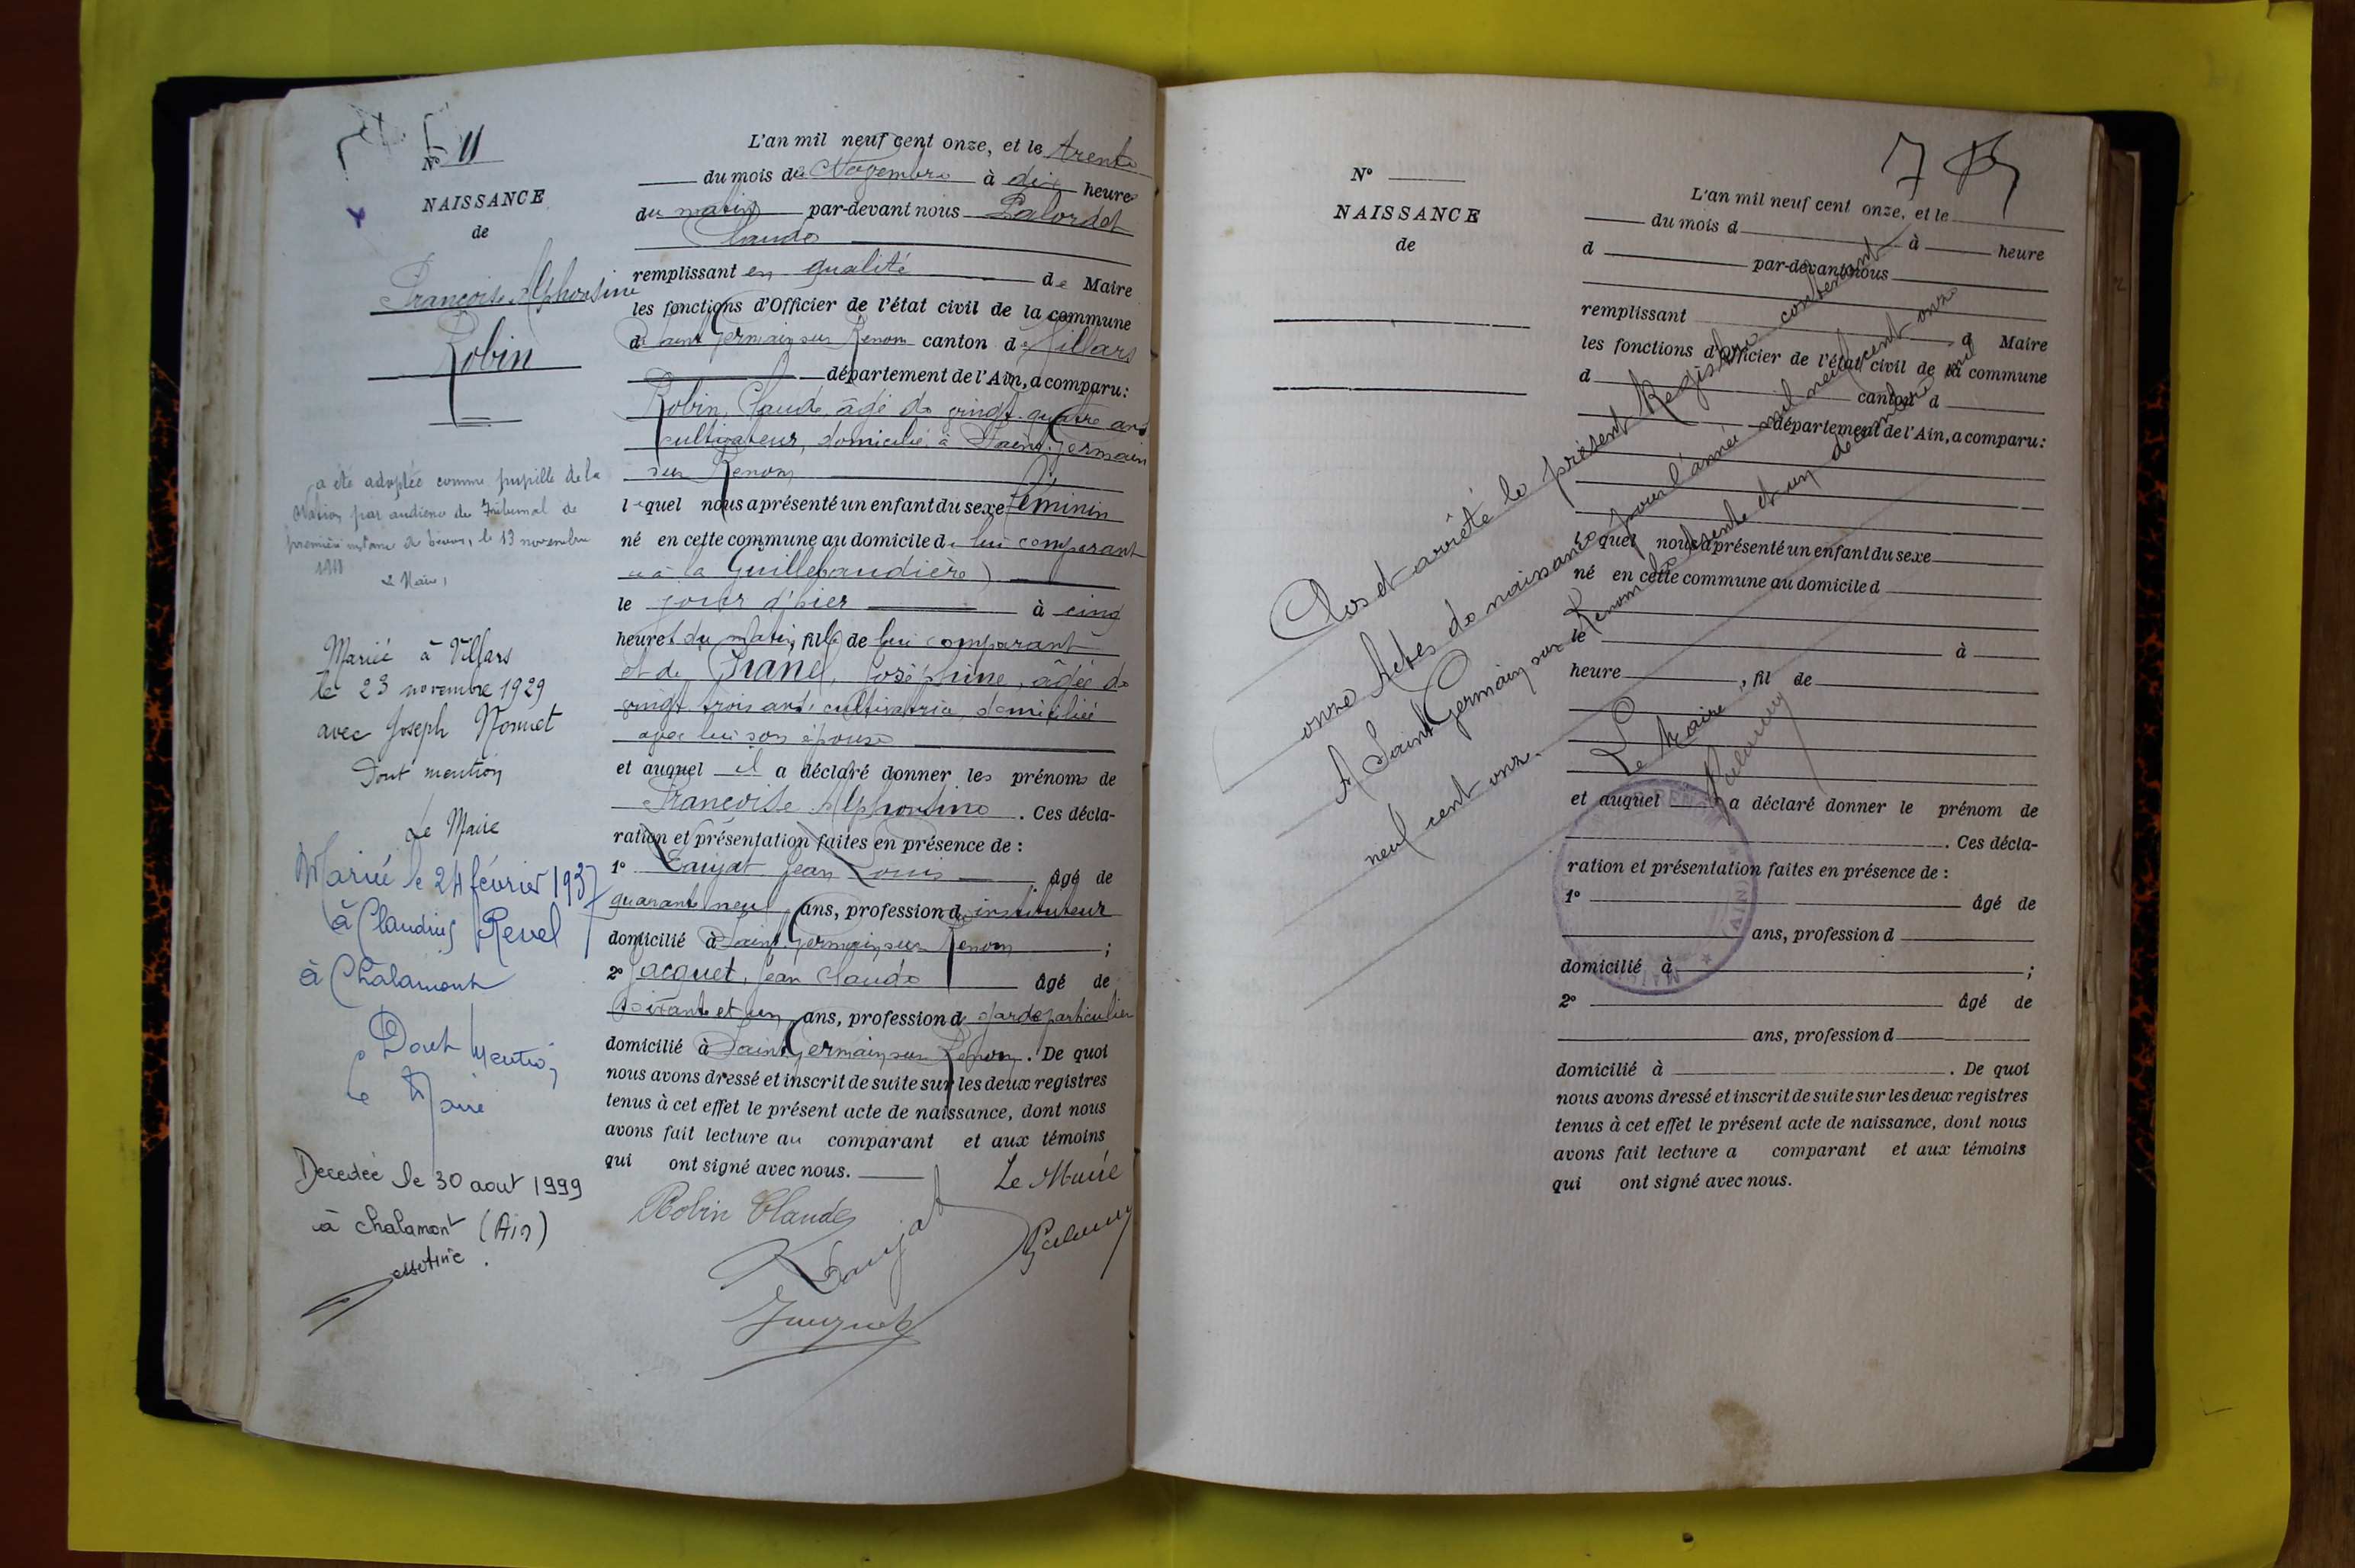 N° 11
NAISSANCE
de
Françoise Alphonsine
Robin
a été adoptée comme pupille de la
Nation par audience du Tribunal de
première instance de le 13 novembre
Le Maire,
Mariée à Villars
le 23 novembre 1929
avec Joseph
Dont mention
Le Maire
Mariée le 24 février 1937
à Claudius Revel
à Chalamont
Dont Mention
Le Maire
Decedée le 30 aout 1999
à Chalamont (Ain)
L'an mil neuf cent onze, et le trente
du mois de Novembre à dix heures
du matin par-devant nous Palordet
Claude
remplissant en qualité de Maire
les fonctions d'Officier de l'état civil de la commune
de Saint Germain sur Renom canton de Villars
département de l'Ain, a comparu:
Robin, Claude, âgé de vingt-quatre ans
cultivateur, domicilié à Saint-Germain
sur Renom
lequel nous a présenté un enfant du sexe féminin
né en cette commune au domicile de lui comparant
le jour d'hier à cinq
heures du matin, fille de lui comparant
et de Joséphine, âgée de
vingt trois ans, cultivatrice, domiciliée
avec lui son épouse
et auquel il a déclaré donner les prénoms de
Françoise Alphonsine. Ces décla-
ration et présentation faites en présence de :
1° Laujat Jean Louis âgé de
quarante neuf ans, profession d'instituteur
domicilié à Saint-Germain sur Renom ;
2° Jacquet, Jean Claude âgé de
soixante et un ans, profession de garde particulier
domicilié à Saint Germain sur Renom. De quoi
nous avons dressé et inscrit de suite sur les deux registres
tenus à cet effet le présent acte de naissance, dont nous
avons fait lecture au comparant et aux témoins
qui ont signé avec nous.
Le Maire
Robin Claude
Laujat
Jacquet
N°
NAISSANCE
de
L'an mil neuf cent onze, et le
du mois d à heure
d par-devant nous
remplissant d Maire
les fonctions d'Officier de l'état civil de la commune
d canton d
département de l'Ain, a comparu:
lequel nous a présenté un enfant du sexe
né en cette commune au domicile d
le à
heure , fil de
et auquel a déclaré donner le prénom de
. Ces décla-
ration et présentation faites en présence de :
1° âgé de
ans, profession d
domicilié à ;
2° âgé de
ans, profession d
domicilié à . De quoi
nous avons dressé et inscrit de suite sur les deux registres
tenus à cet effet le présent acte de naissance, dont nous
avons fait lecture a comparant et aux témoins
qui ont signé avec nous.
Clos et arrêté le présent Registre contenant
onze Actes de naissance pour l'année mil neuf cent onze
A Saint Germain sur Renom le trente et un décembre mil
neuf cent onze.
Le Maire